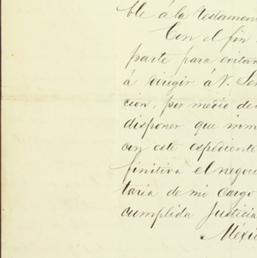 ble á la Testamen
Con el fin
parte para evitar
á dirigir á V. Se
cion, por medio de
disponer que inm
en este espediente
finitiva el negoc
taria de mi cargo
cumplida Justicia
Méxic